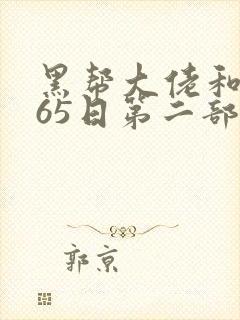 黑帮大佬和
65日第二部
郭京